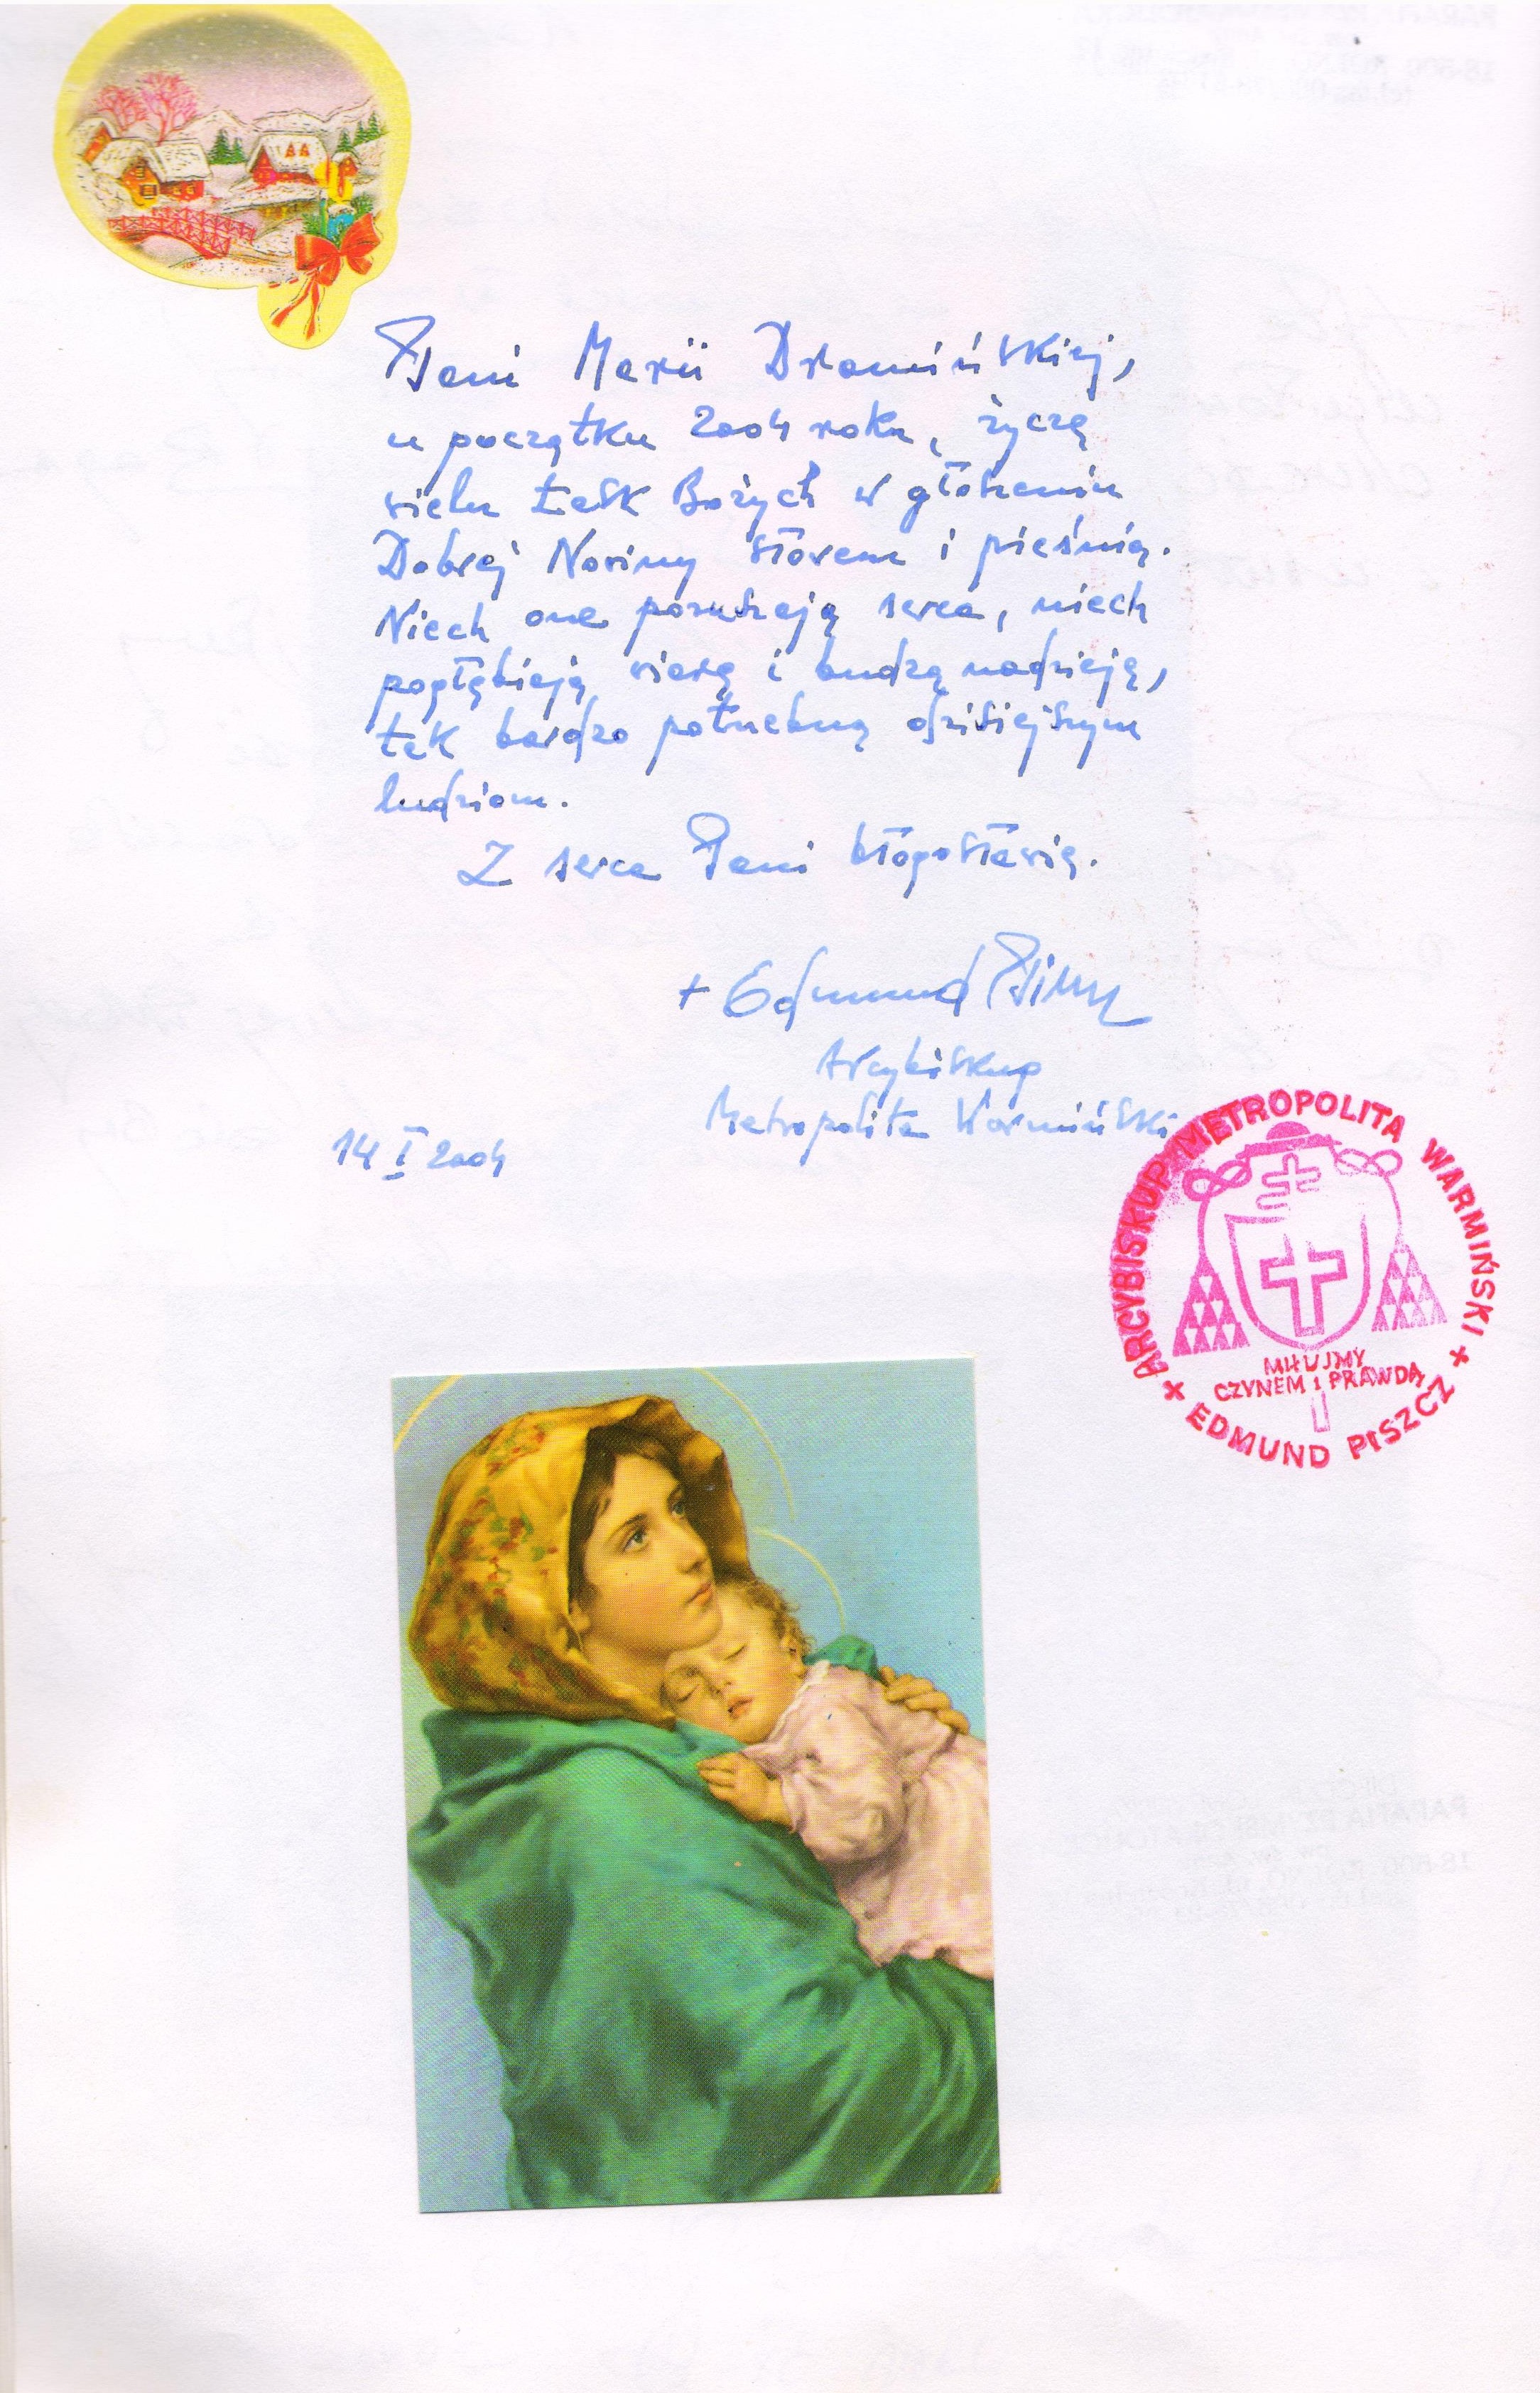 Pani Marii Dramińskiej,
u początku 2004 roku, życzę
wielu Łask Bożych w głoszeniu
Dobrej Nowiny słowem i pieśnią.
Niech one poruszają serca, niech
pogłębiają wiarę i budzą nadzieję,
tak bardzo potrzebną dzisiejszym
ludziom.
Z serca Pani błogosławię.
+ Edmund Piszcz
Arcybiskup
Metropolita Warmiński
14 I 2004
ARCYBISKUP METROPOLITA WARMIŃSKI
MIŁUJMY
CZYNEM I PRAWDĄ
× EDMUND PISZCZ ×